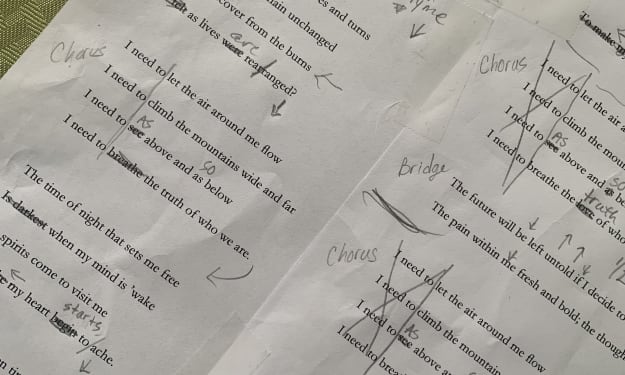 and turns
main unchanged
cover from the burns
as lives were rearranged?
are
Chorus
I need to let the air around me flow
I need to climb the mountains wide and far
As
I need to see above and as below
so
I need to breathe the truth of who we are.
The time of night that sets me free
Is darkest when my mind is 'wake
spirits come to visit me
starts
my heart begin to ache.
To make
Chorus
I need to let the air a
I need to climb the mou
As
I need to see above and as be
so
I need to breathe the of who
truth
Bridge
The future will be left untold if I decide to
The pain within he fresh and bold; the though
1/2
Chorus
I need to let the air around me flow
I need to climb the mountain
As
I need to see above a
I need to brea